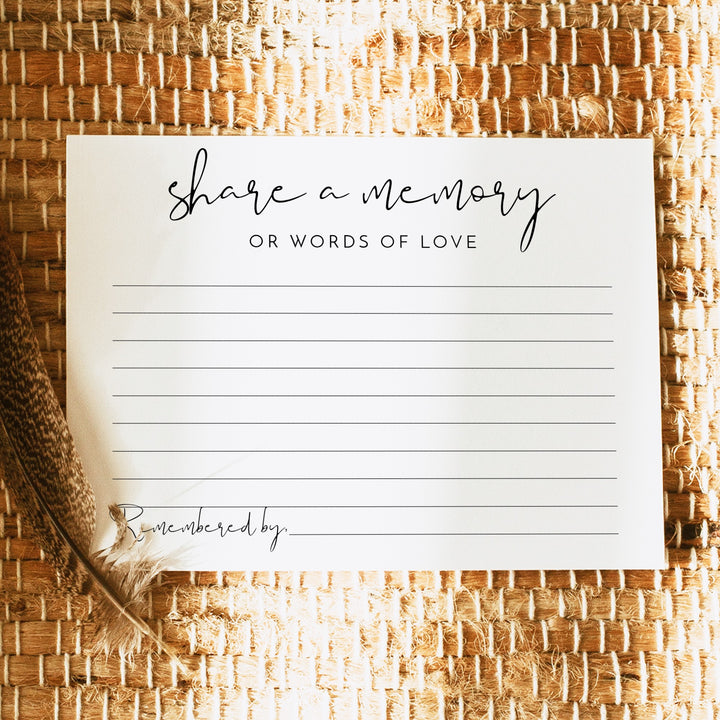 share a memory
OR WORDS OF LOVE
Remembered by: